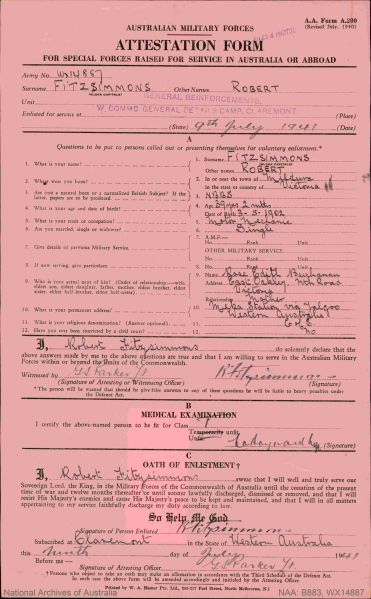 A.A. Form A.200
(Revised July, 1940)
AUSTRALIAN MILITARY FORCES
FILES & PHOTOS
ATTESTATION FORM
FOR SPECIAL FORCES RAISED FOR SERVICE IN AUSTRALIA OR ABROAD
Army No. WX14887
Surname FITZSIMMONS Other Names ROBERT
(BLOCK CAPITALS)
Unit GENERAL REINFORCEMENTS.
W. COMMD GENERAL DETAILS CAMP, CLAREMONT
Enlisted for service at (Place)
(State) 9th July 1941 (Date)
A
Questions to be put to persons called out or presenting themselves for voluntary enlistment.*
1. What is your name? 1. Surname FITZSIMMONS
(BLOCK CAPITALS)
Other names ROBERT
2. Where were you born? 2. In or near the town of Mildura
in the state or country of Victoria
3. Are you a natural born or a naturalized British Subject? If the latter, papers are to be produced. 3. NBBS
4. What is your age and date of birth? 4. Age 39 yrs 2 mths
Date of Birth 3-5-1902
5. What is your trade or occupation? 5. Motor Mechanic
6. Are you married, single or widower? 6. Single
7. Give details of previous Military Service. 7. A.M.F.—
No. Rank Unit
OTHER MILITARY SERVICE.
No. Rank Unit
8. If now serving, give particulars 8. No. Rank Unit
9. Who is your actual next of kin? (Order of relationship—wife, eldest son, eldest daughter, father, mother, eldest brother, eldest sister, eldest half-brother, eldest half-sister) 9. Name Rose Edith Buchanan
Address East Oakley, Nth Road
Victoria
Relationship Mother
10. What is your permanent address? 10. Meka Station via Yalgoo
Western Australia
11. What is your religious denomination? (Answer optional) 11. C of E.
12. Have you ever been convicted by a civil court? 12. No
I, Robert Fitzsimmons do solemnly declare that the
above answers made by me to the above questions are true and that I am willing to serve in the Australian Military
Forces within or beyond the limits of the Commonwealth.
Witnessed by G S Parker Lt R Fitzsimmons
(Signature of Attesting Officer) (Signature of Person Enlisted)
* The person will be warned that should he give false answers to any of these questions he will be liable to heavy penalties under the Defence Act.
B
MEDICAL EXAMINATION
I certify the above-named person to be fit for Class I
Temporarily unfit
Unfit
(Signature)
C
OATH OF ENLISTMENT†
I, Robert Fitzsimmons swear that I will well and truly serve our
Sovereign Lord, the King, in the Military Forces of the Commonwealth of Australia until the cessation of the present
time of war and twelve months thereafter or until sooner lawfully discharged, dismissed or removed, and that I will
resist His Majesty's enemies and cause His Majesty's peace to be kept and maintained, and that I will in all matters
appertaining to my service faithfully discharge my duty according to law.
So Help Me God
Signature of Person Enlisted R Fitzsimmons
Subscribed at Claremont in the State of Western Australia
this Ninth day of July 1941
Before me—
Signature of Attesting Officer G S Parker Lt.
† Persons who object to take an oath may make an affirmation in accordance with the Third Schedule of the Defence Act.
In such case the above form will be amended accordingly and initialed by the Attesting Officer.
National Archives of Australia
NAA: B883, WX14887